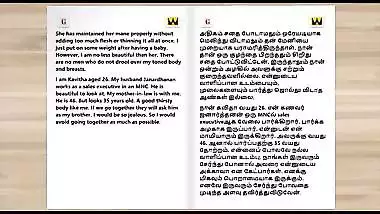 She has maintained her mane properly without
adding too much flesh or thinning it all at once. I
just put on some weight after having a baby.
However, I am no less beautiful than her. There
are no men who do not drool over my toned body
and breasts.
I am Kavitha aged 26. My husband Janardhanan
works as a sales executive in an MNC. He is
beautiful to look at. My mother-in-law is with me.
He is 46. But looks 35 years old. A good thirsty
body like me. If we go together they will ask him
as my brother. I would be so jealous. So I would
avoid going together as much as possible.
அதிகம் சதை போடாமலும் ஒரேயடியாக
மெலிந்து விடாமலும் தன் மேனியை
முறையாக பராமரித்திருந்தாள். நான்
தான் ஒரு குழந்தை பிறந்ததும் சிறிது
சதை போட்டுவிட்டேன். இருந்தாலும் நான்
ஒன்றும் அழகில் அவளுக்கு சற்றும்
குறைந்தவளில்லை. என்னுடைய
வாளிப்பான உடம்பையும்,
முலைகளையும் பார்த்து ஜொல்லு விடாத
ஆண்கள் இல்லை.
நான் கவிதா வயது 26. என் கணவர்
ஜனார்த்தனன் ஒரு MNCல் sales
executiveஆக வேலை பார்க்கிறார். பார்க்க
அழகாக இருப்பார். என்னுடன் என்
மாமியாரும் இருக்கிறார். அவருக்கு வயது
46. ஆனால் பார்ப்பதற்கு 35 வயது
தோற்றம். என்னைப் போலவே நல்ல
வாளிப்பான உடம்பு; நாங்கள் இருவரும்
சேர்ந்து போனால் அவரை என்னுடைய
அக்காவா என கேட்பார்கள். எனக்கு
மிகவும் பொறாமையாக இருக்கும்.
எனவே இருவரும் சேர்ந்து போவதை
முடிந்த அளவு தவிர்த்துவிடுவேன்.